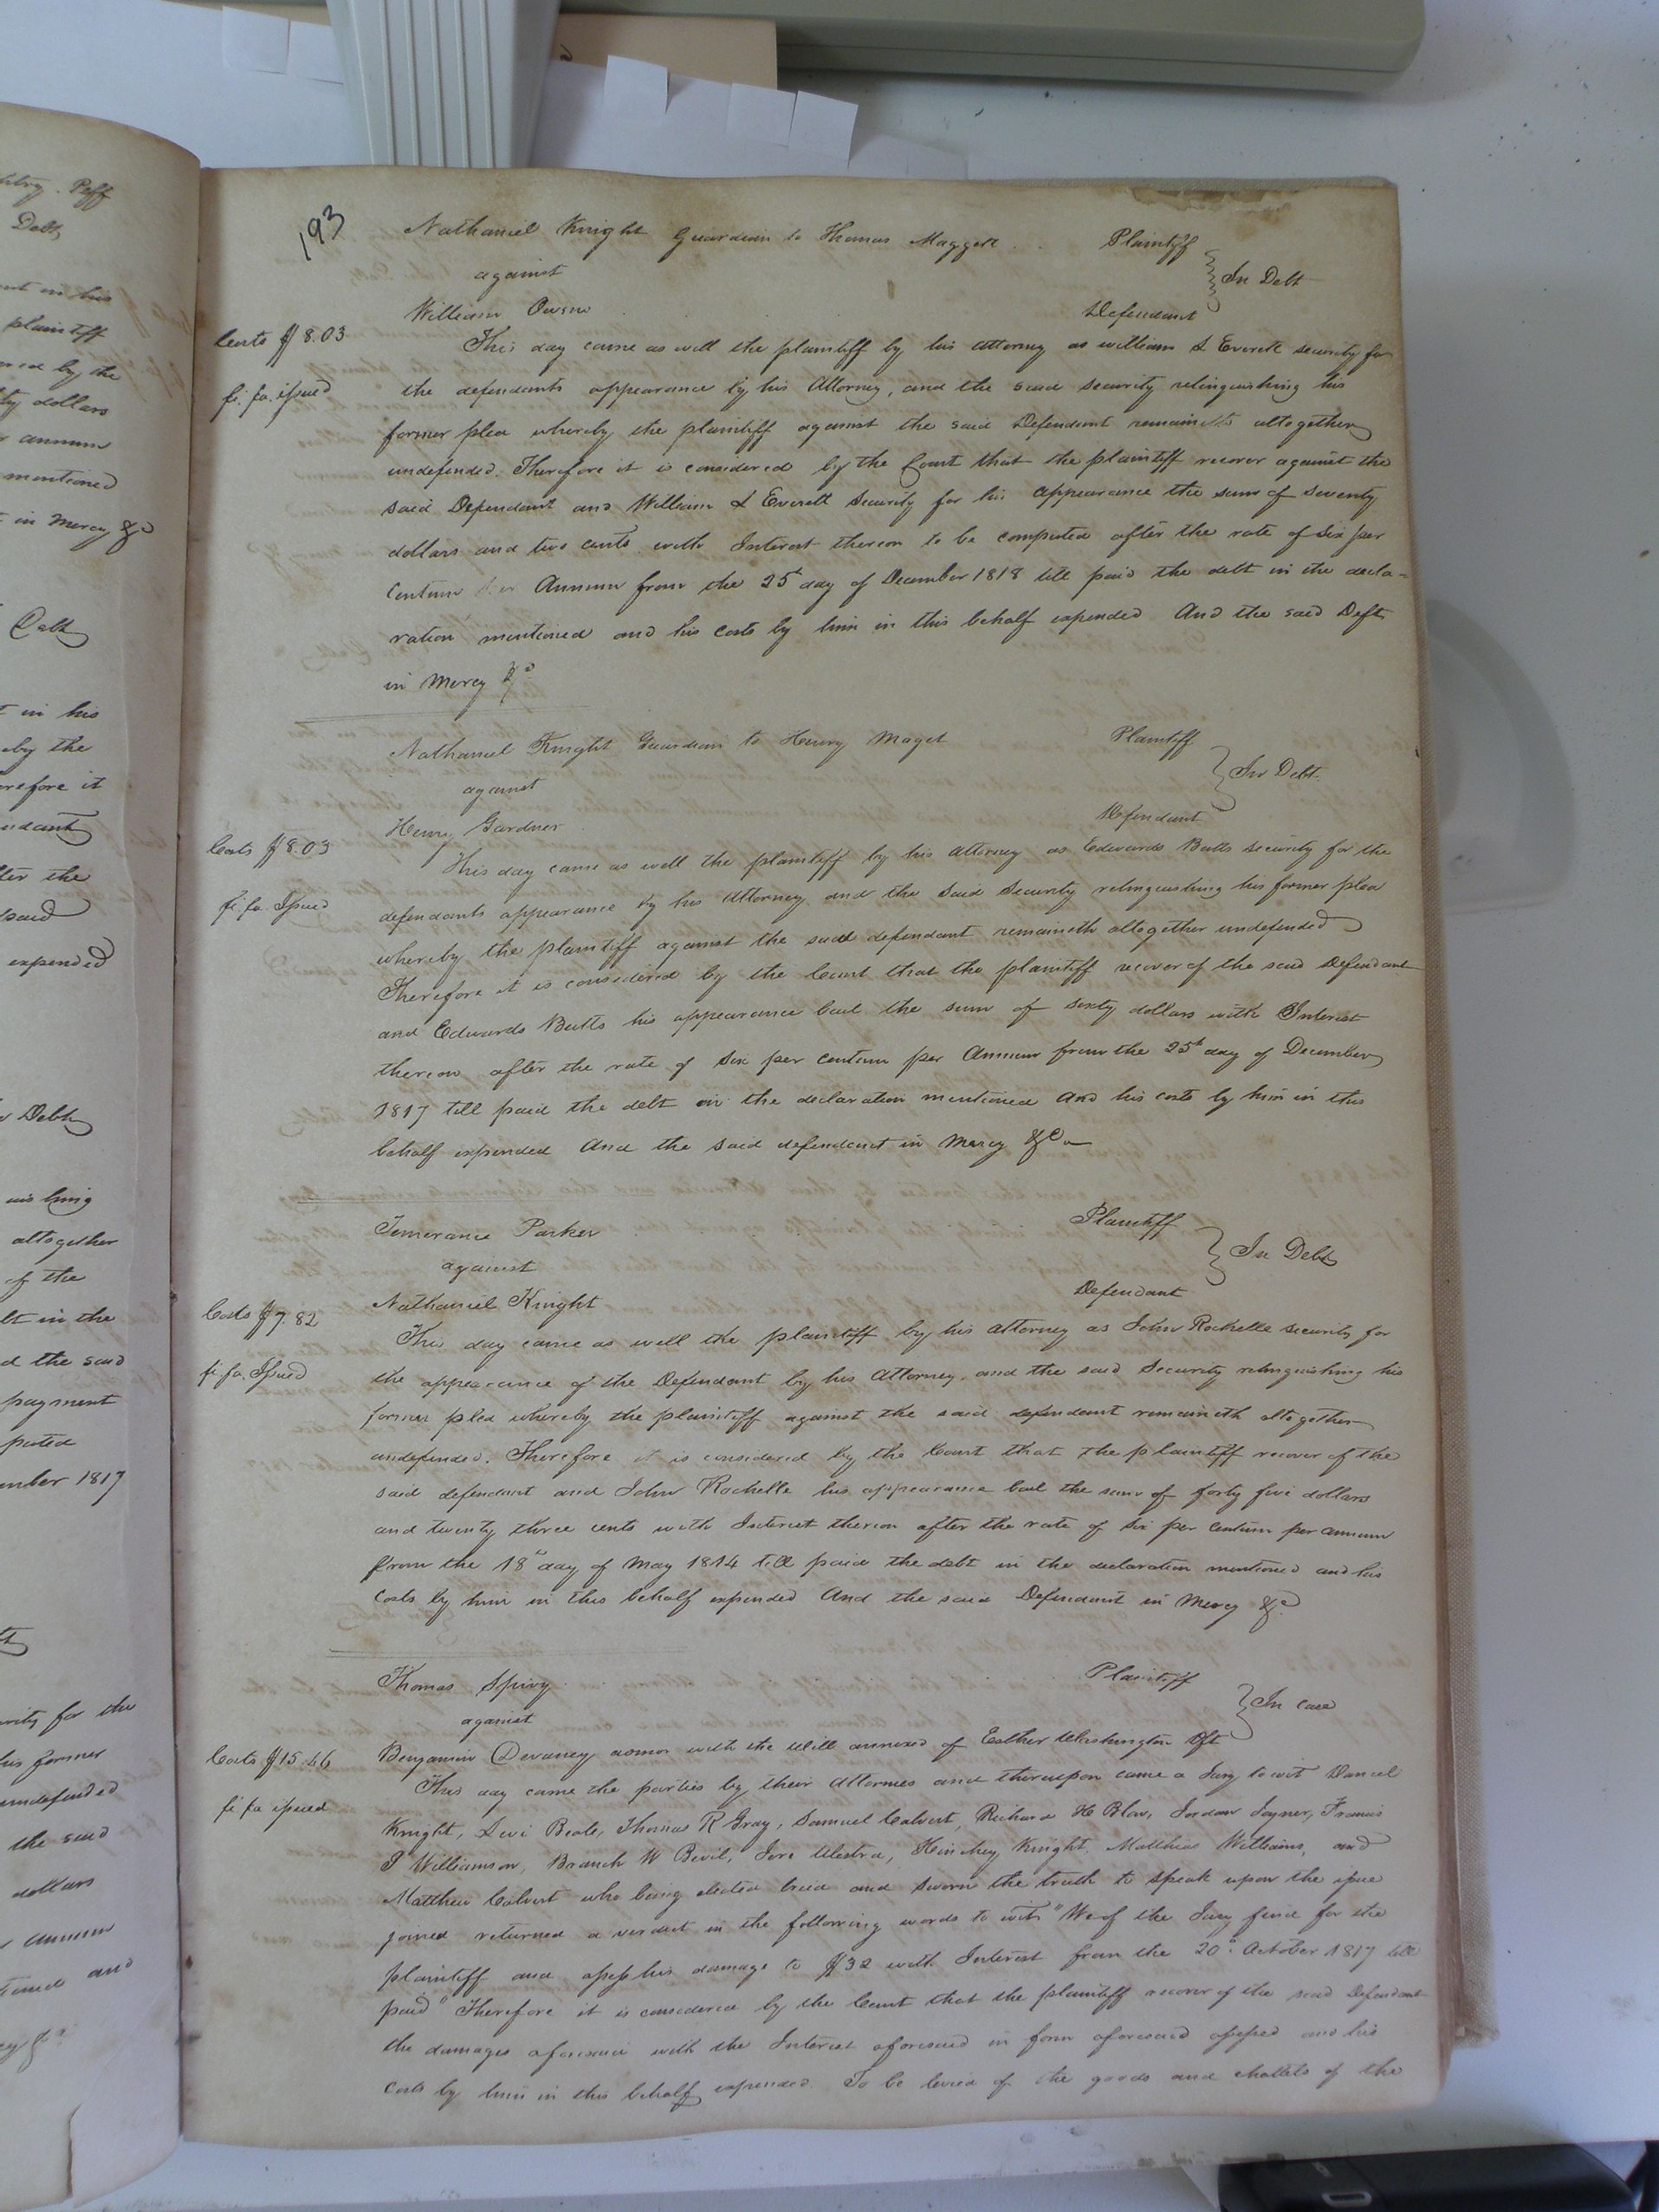 ntry. Peff
Debt
nt in his
plaintiff
ered by the
ty dollars
r annum
mentioned
t in Mercy &c
Debt
t in his
eby the
erefore it
endant
fter the
said
expended
n Debt
uishing
altogether
of the
bt in the
d the said
payment
puted
ember 1817
urity for the
his former
undefended
the said
dollars
r annum
tioned and
193
Nathaniel Knight Guardian to Thomas Maggett . . Plaintiff
against
In Debt
William Owens . . . Defendant
Costs $8.03
This day came as well the plaintiff by his attorney as William L Everett security for
fi. fa. issued
the defendants appearance by his Attorney, and the said security relinquishing his
former plea whereby the plaintiff against the said Defendant remaineth altogether
undefended. Therefore it is considered by the Court that the plaintiff recover against the
said Defendant and William L Everett Security for his appearance the sum of seventy
dollars and two cents with Interest thereon to be computed after the rate of Six per
Centum per Annum from the 25th day of December 1818 till paid the debt in the decla-
ration mentioned and his costs by him in this behalf expended And the said Deft
in Mercy &c
Nathaniel Knight Guardian to Henry Maget Plaintiff
against
In Debt.
Henry Gardner Defendant
Costs $8.03
This day came as well the plaintiff by his attorney as Edwards Butts security for the
fi. fa. Issued
defendants appearance by his Attorney and the said Security relinquishing his former plea
whereby the plaintiff against the said defendant remaineth altogether undefended
Therefore it is considered by the Court that the plaintiff recover of the said Defendant
and Edwards Butts his appearance bail the sum of sixty dollars with Interest
thereon after the rate of Six per centum per Annum from the 25th day of December
1817 till paid the debt in the declaration mentioned and his costs by him in this
behalf expended And the said defendant in Mercy &c
Temerance Parker . . . Plaintiff
against
In Debt
Nathaniel Knight Defendant
Costs $7.82
This day came as well the plaintiff by his attorney as John Rochelle security for
fi. fa. Issued
the appearance of the Defendant by his Attorney and the said Security relinquishing his
former plea whereby the plaintiff against the said defendant remaineth altogether
undefended. Therefore it is considered by the Court that the plaintiff recover of the
said defendant and John Rochelle his appearance bail the sum of forty five dollars
and twenty three cents with Interest thereon after the rate of Six per Centum per annum
from the 18th day of May 1814 till paid the debt in the declaration mentioned and his
costs by him in this behalf expended And the said Defendant in Mercy &c
Thomas Spivy . . . Plaintiff
against
In Case
Benjamin Devaney admor with the Will annexed of Esther Washington Dft
Costs $15.46
This day came the parties by their Attornies and thereupon came a Jury to wit Daniel
fi. fa issued
Knight, Levi Beale, Thomas R Gray, Samuel Calvert, Richard H Blow, Jordan Joyner, Francis
J Williamson, Branch W Bevil, Jere Westra, Kinchey Knight, Matthias Williams, and
Matthew Calvert who being elected tried and Sworn the truth to speak upon the issue
joined returned a verdict in the following words to wit "We of the Jury find for the
plaintiff and assess his damage to $32 with Interest from the 20th October 1817 till
paid" Therefore it is considered by the Court that the plaintiff recover of the said Defendant
the damages aforesaid with the Interest aforesaid in form aforesaid assessed and his
costs by him in this behalf expended. To be levied of the goods and chattels of the